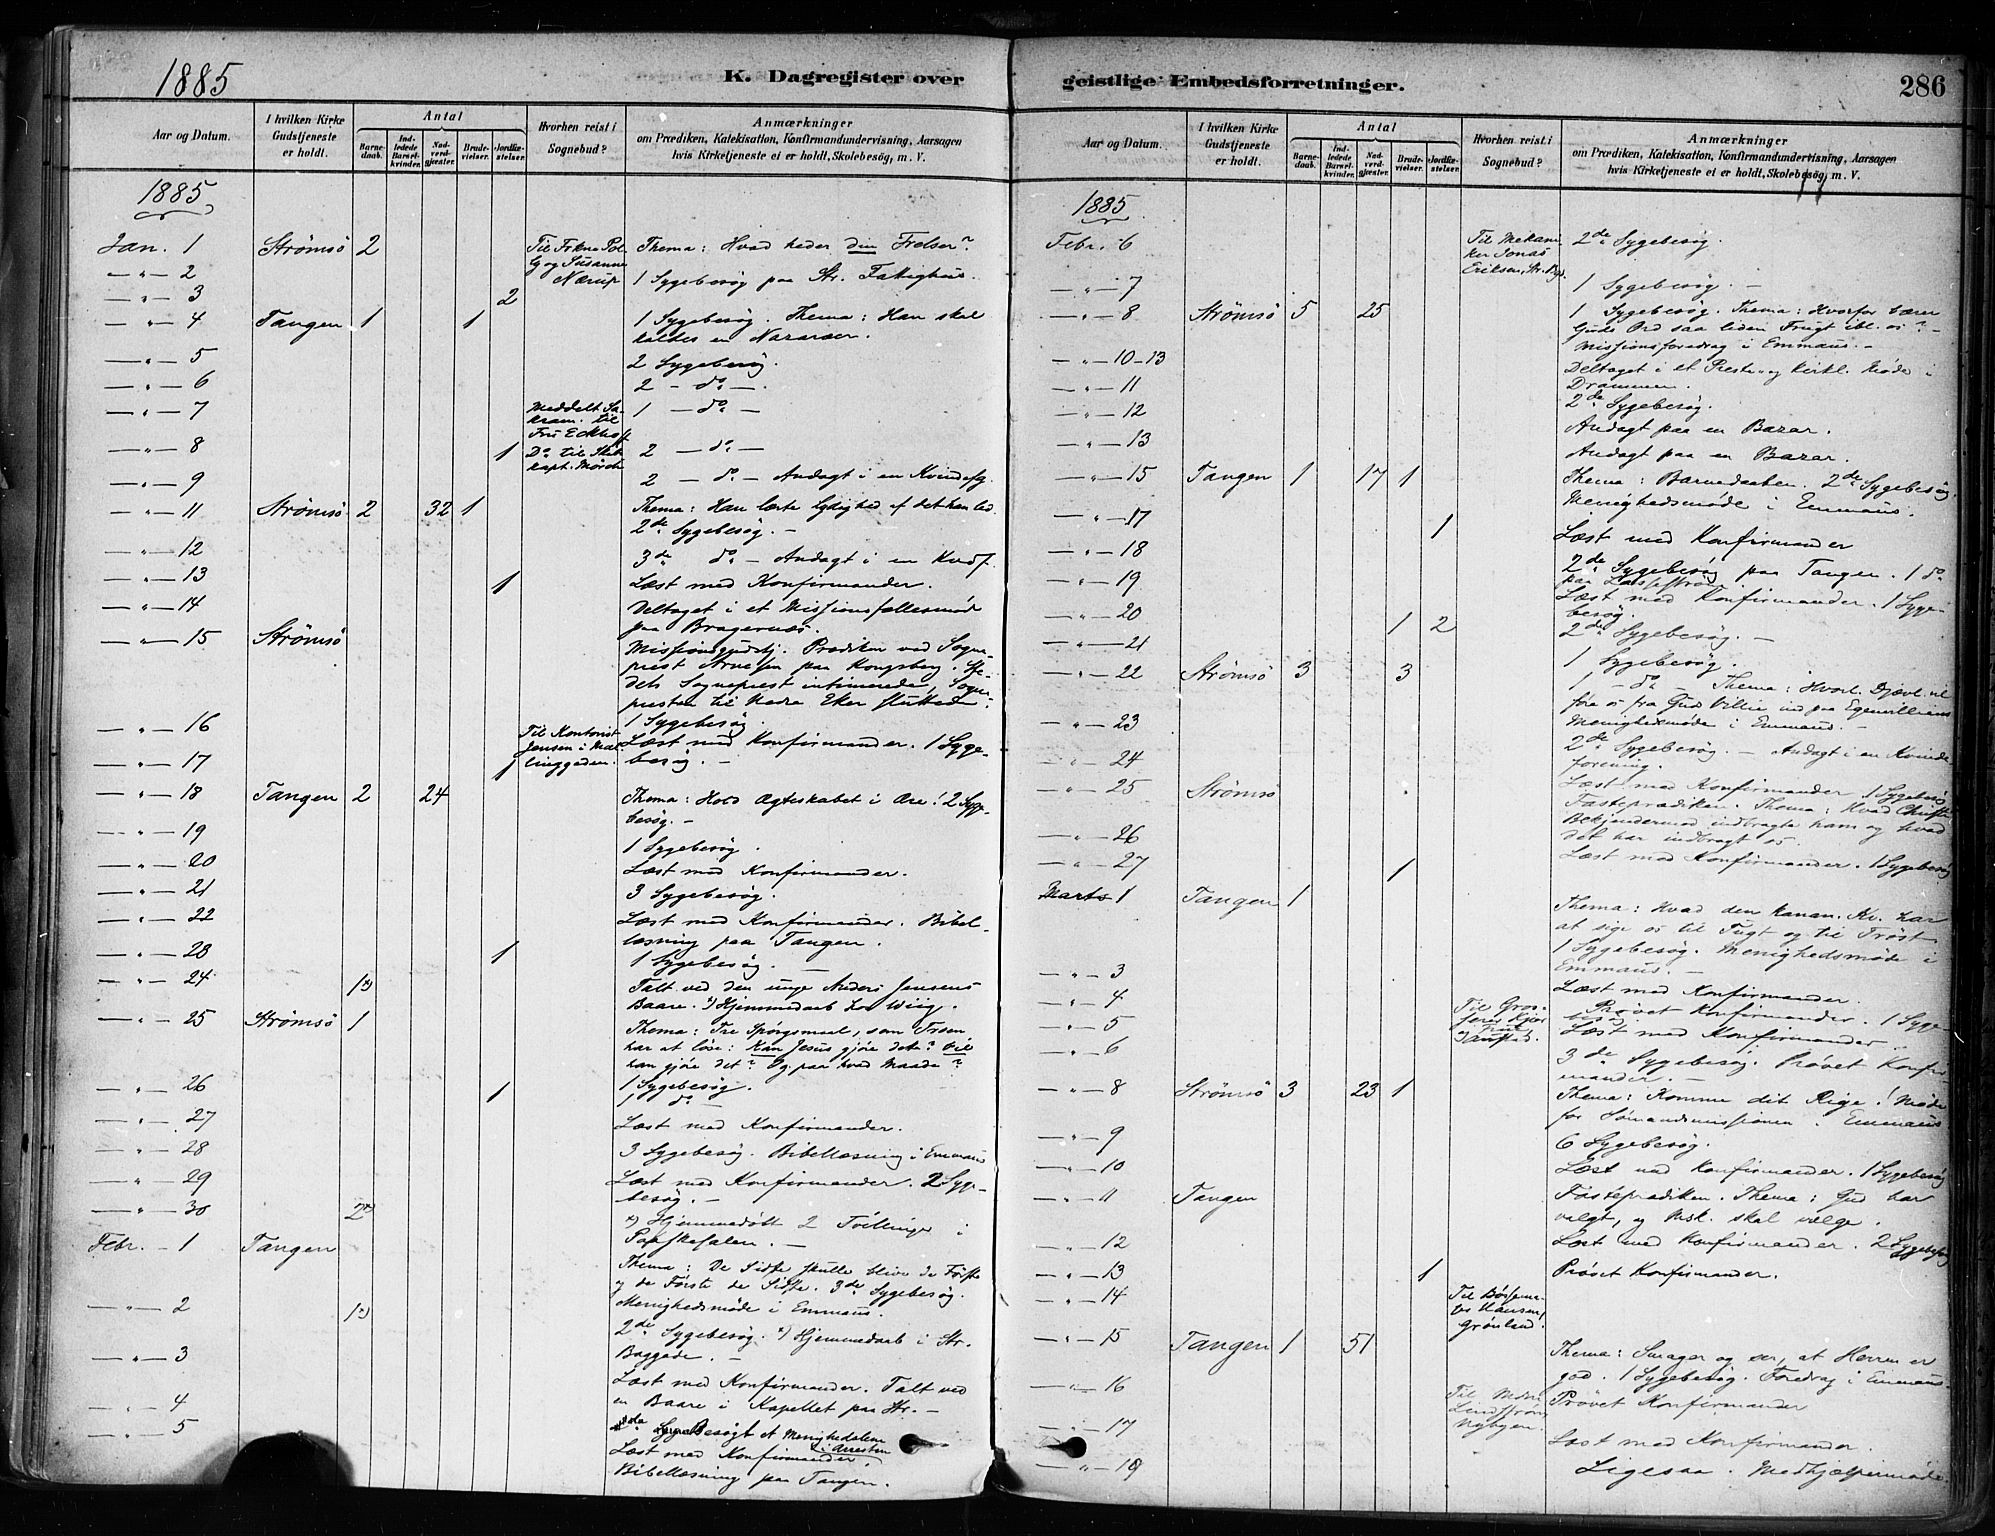 1885
K. Dagregister over
Aar og Datum.
I hvilken Kirke Gudstjeneste er holdt.
Antal
Barnedaab.
Indledede Barselkvinder.
Nadverdgjæster.
Brudevielser.
Jordfæstelser.
Hvorhen reist i Sognebud?
Anmærkninger
om Prædiken, Katekisation, Konfirmandundervisning, Aarsagen
hvis Kirketjeneste ei er holdt, Skolebesøg, m. V.
1885
Jan. 1 Strömsö 2 Thema: Hvad heder din Frelser?
og Susanne
Nærup
— " — 2 1 Sygebesög paa Str. Fattighus.
— " — 3 2
— " — 4 Tangen 1 1 1 Sygebesög. Thema: Han skal
kaldes en Nazaræer.
— " — 5 2 Sygebesög.
— " — 6 2 — do —.
— " — 7 Meddelt Sakram. til Fru Eckhoff 1 — do —
— " — 8 1 Do til 2 — do —
— " — 9 2 — do — Andagt i en Kvindefg.
— " — 11 Strömsö 2 32 1 Thema: Han lærte Lydighed af det han led.
2de Sygebesög. —
— " — 12 3de do — Andagt i en Kvdf.
— " — 13 1 Læst med Konfirmander.
— " — 14 Deltaget i et Missionsfællesmöde
paa Bragernæs.
— " — 15 Strömsö Missionsgudstj. Prædiken ved Sogneprest
Arnesen paa Kongsberg. Stedets
Sogneprest intimerede, Sognepresten
til Nedre Eker sluttede.
— " — 16 1 Sygebesög.
— " — 17 1 Til Kontorist Jensen i Læst med Konfirmander. 1 Sygebesög.
—
— " — 18 Tangen 2 24 Thema: Hold Ægteskabet i Ære! 2 Sygebesög.
—
— " — 19 1 Sygebesög.
— " — 20 Læst med Konfirmander.
— " — 21 3 Sygebesög.
— " — 22 Læst med Konfirmander. Bibellæsning
paa Tangen.
— " — 23 1 1 Sygebesög. —
— " — 24 1 x) Talt ved den unge Anders Jensens
Baare. x) Hjemmedaab hos Wiig.
— " — 25 Strömsö 1 Thema: Tre Spörgsmaal, som Troen
har at löse: Kan Jesus gjöre det? Vil
han gjöre det? Og paa hvad Maade?
— " — 26 1 1 Sygebesög.
1 do —
— " — 27 Læst med Konfirmander.
— " — 28 3 Sygebesög. Bibellæsning i Emmaus
— " — 29 Læst med Konfirmander. 2 Sygebesög.
—
— " — 30 2 x) x) Hjemmedöbt 2 Tvillinger i
— Febr. 1 Tangen Thema: De Sidste skulle blive de Förste
og de Förste de Sidste. 3de Sygebesög.
Menighedsmöde i Emmaus.
— " — 2 1 x) 2de Sygebesög. x) Hjemmedaab i Str.
Baggade. —
— " — 3 Læst med Konfirmander. Talt ved
en Baare i Kapellet paa Str. —
— " — 4 Besögt et Menighedslem
i Arresten
— " — 5 Læst med Konfirmander.
Bibellæsning paa Tangen.
geistlige Embedsforretninger.
286
Aar og Datum.
I hvilken Kirke Gudstjeneste er holdt.
Antal
Barnedaab.
Indledede Barselkvinder.
Nadverdgjæster.
Brudevielser.
Jordfæstelser.
Hvorhen reist i Sognebud?
Anmærkninger
om Prædiken, Katekisation, Konfirmandundervisning, Aarsagen
hvis Kirketjeneste ei er holdt, Skolebesøg, m. V.
1885
Febr. 6 Til Mekaniker Jonas Eriksen, Str. 2de Sygebesög.
— " — 7 1 Sygebesög. —
— " — 8 Strömsö 5 25 1 Sygebesög. Thema: Hvorfor bærer
Guds Ord saa liden Frugt ibl. os? —
Missionsforedrag i Emmaus. —
— " — 10-13 Deltaget i et Preste- og Kirkl. Möde i
Drammen.
— " — 11 2de Sygebesög.
— " — 12 Andagt paa en Bazar.
— " — 13 Andagt paa en Bazar.
— " — 15 Tangen 1 17 1 Thema: Barnedaaben. 2de Sygebesög
Menighedsmöde i Emmaus.
— " — 17 1 Læst med Konfirmander
— " — 18 2de Sygebesög paa Tangen. 1 do
— " — 19 Læst med Konfirmander. 1 Sygebesög
— " — 20 1 2 2de Sygebesög. —
— " — 21 1 Sygebesög.
— " — 22 Strömsö 3 3 1 — do — Thema: Hvorl. Djævl. vil
före os fra Guds Villie ind paa Egenvilliens
— " — 23 Menighedsmöde i Emmaus.
— " — 24 2de Sygebesög. — Andagt i en Kvindeforening.
— " — 25 Strömsö Læst med Konfirmander 1 Sygebesög
Fasteprædiken. Thema: Hvad Christi
Bekjendermod indbragte ham og hvad
det har indbragt os.
— " — 26 Læst med Konfirmander. 1 Sygebesög
— " — 27 1
Marts 1 Tangen 1 Thema: Hvad den kanan. Kv. har
at sige os til Tugt og til Tröst.
1 Sygebesög. Menighedsmöde i
Emmaus. —
— " — 3 Læst med Konfirmander.
— " — 4 Prövet Konfirmander. 1 Sygebesög
— " — 5 Læst med Konfirmander.
— " — 6 3de Sygebesög. Prövet Konfirmander.
—
— " — 8 Strömsö 3 23 1 Thema: Komme dit Rige! Möde
for Sömandsmissionen i Emmaus.
— " — 9 6 Sygebesög.
— " — 10 Læst med Konfirmander. 1 Sygebesög
— " — 11 Tangen Fasteprædiken. Thema: Gud har
valgt, og Msk. skal vælge.
— " — 12 Læst med Konfirmander. 2 Sygebesög
— " — 13 1 Prövet Konfirmander.
— " — 14 Til Hansen, Grönland.
— " — 15 Tangen 1 51 Thema: Smager og ser, at Herren er
god. 1 Sygebesög. Foredrag i Emmaus.
— " — 16 Prövet Konfirmander
Nybyen
— " — 17 Læst med Konfirmander.
— " — 19 Ligesaa. Medhjælpermöde.